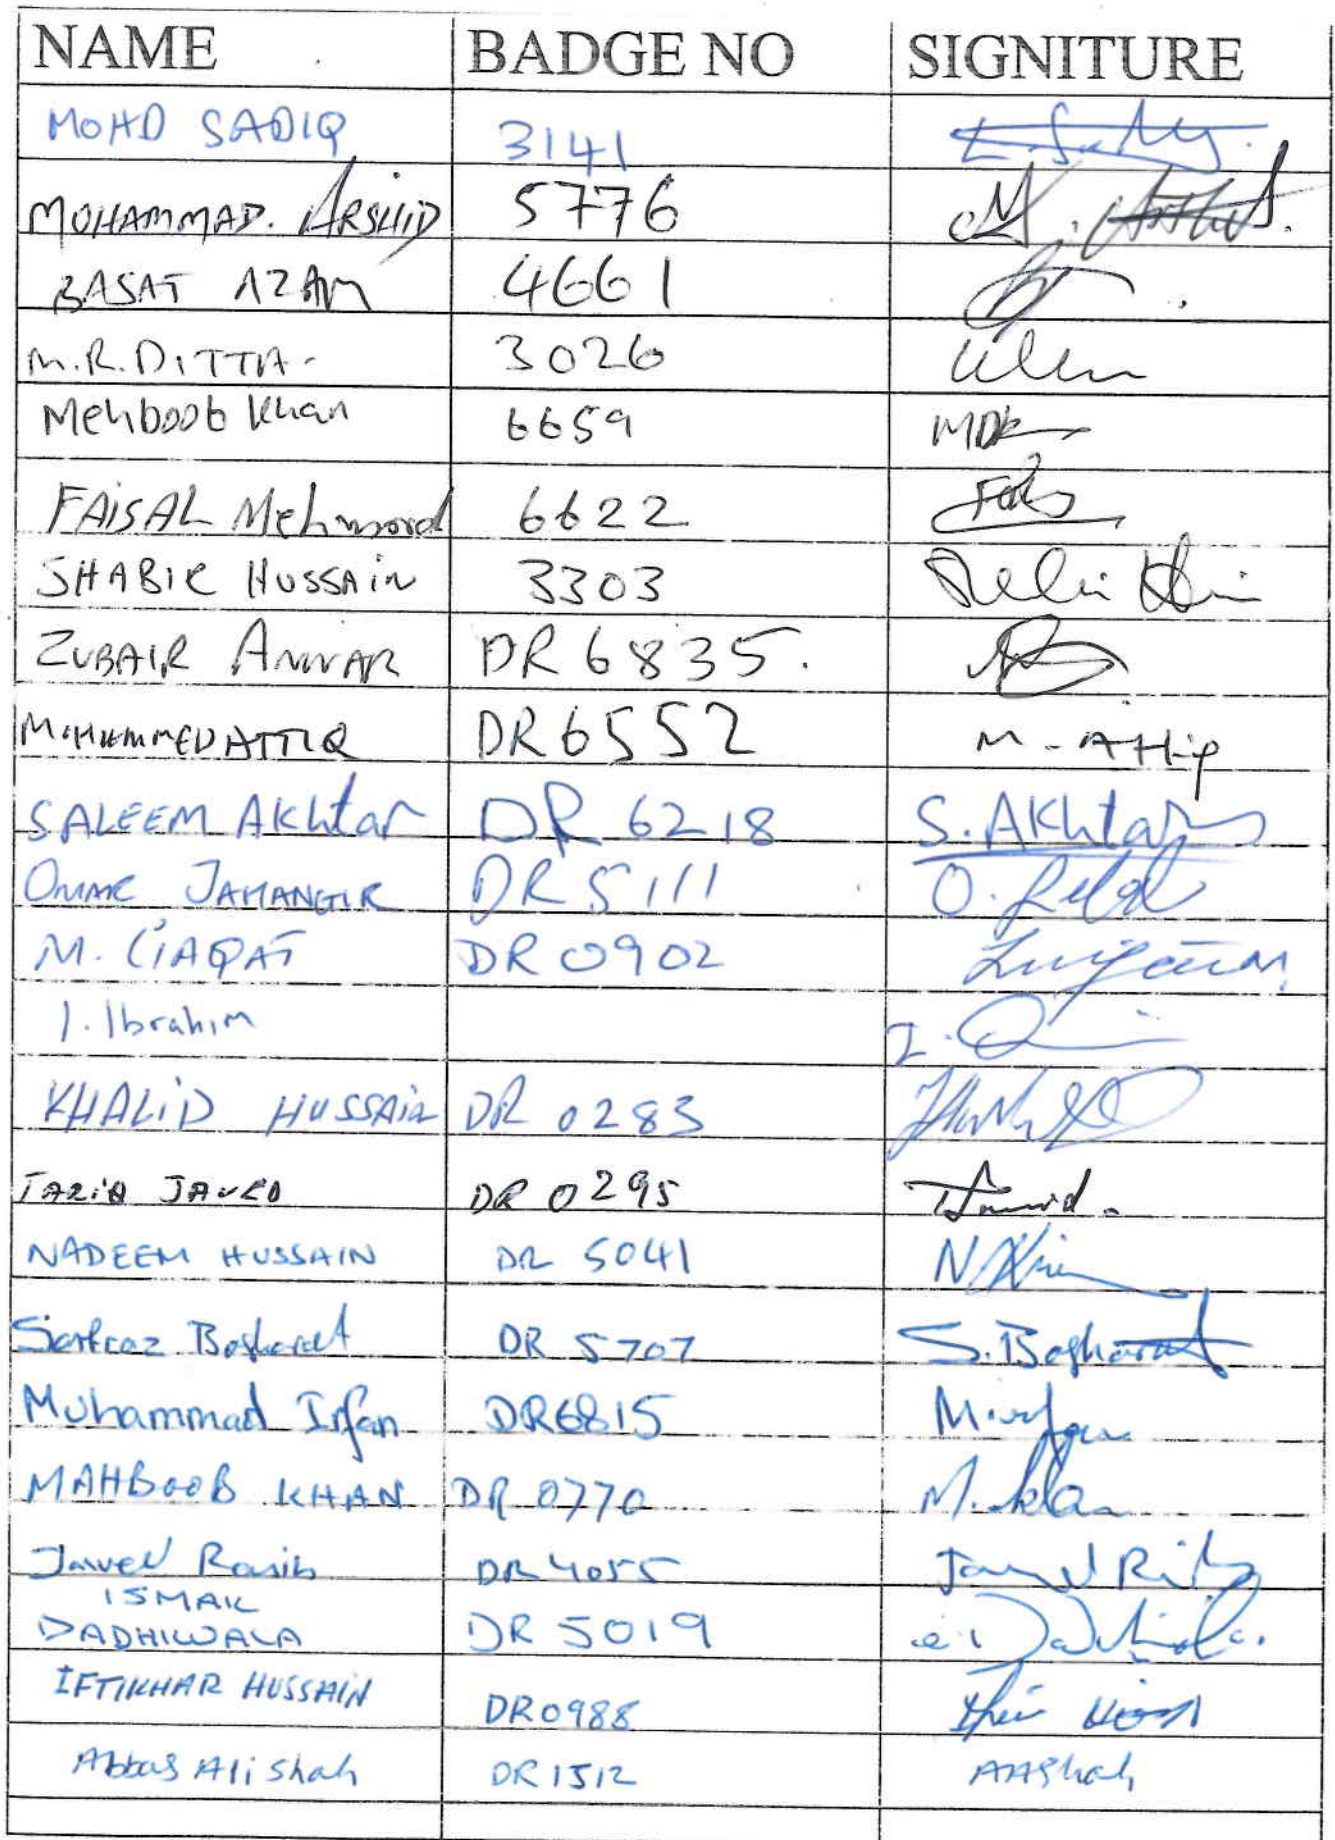 NAME BADGE NO SIGNITURE
MOHD SADIQ 3141
MOHAMMAD. ARSHID 5776 M.
BASAT AZAM 4661
M.R.DITTA- 3026
Mehboob Khan 6659 MDK
FAISAL Mehmood 6622
SHABIR HUSSAIN 3303
ZUBAIR ANWAR DR 6835.
MOHAMMED ATTIQ DR6552 M-Attiq
SALEEM AKhtar DR 6218 S.AKhtar
OMAR JAHANGIR DR 5111 O.
M. LIAQAT DR 0902
I. Ibrahim I.
KHALID HUSSAIN DR 0283
TARIQ JAVED DR 0295
NADEEM HUSSAIN DR 5041
Sarfraz Basharat DR 5707 S.Basharat
Muhammad Irfan DR6815 M.Irfan
MAHBOOB KHAN DR 0770 M.khan
Javed DR 4055 Javed
ISMAIL
DADHIWALA DR 5019
IFTIKHAR HUSSAIN DR0988
Abbas Ali Shah DR1512 AAShah